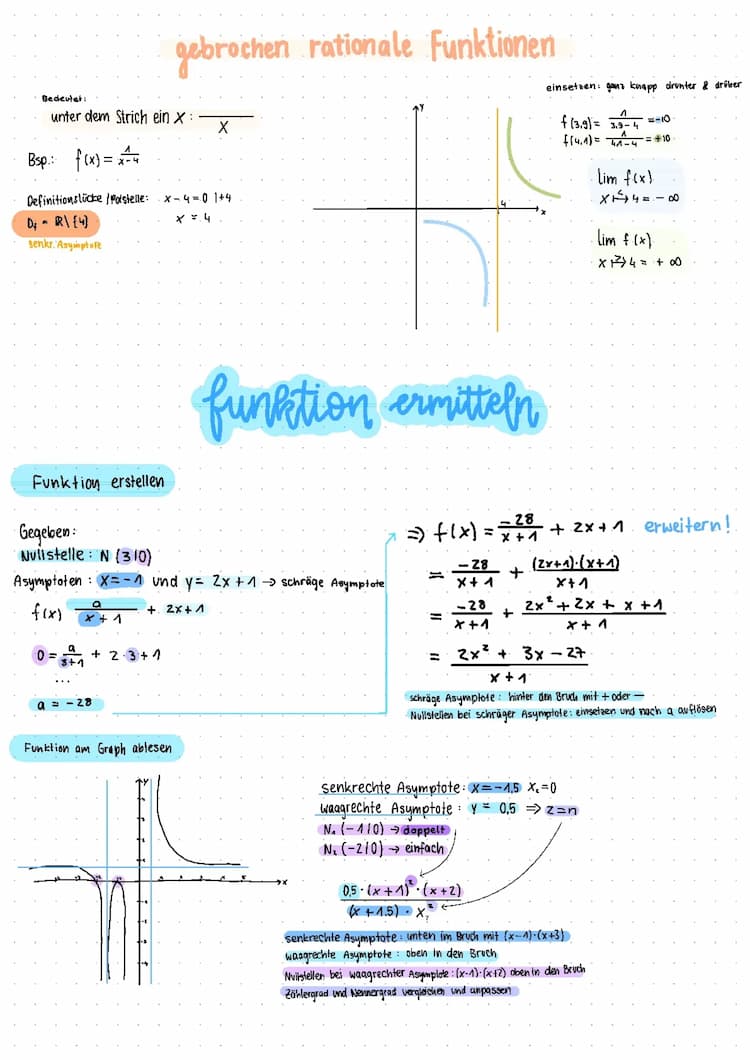 gebrochen rationale Funktionen
Bedeutet:
unter dem Strich ein x: —/x
Bsp.: f(x) = 1/(x-4)
Definitionslücke / Polstelle: x - 4 = 0 | +4
x = 4
Df = ℝ \ {4}
senkr. Asymptote
y
4
x
einsetzen: ganz knapp drunter & drüber
f(3,9) = 1/(3,9-4) = -10
f(4,1) = 1/(4,1-4) = +10
lim f(x)
x <→ 4 = - ∞
lim f(x)
x >→ 4 = + ∞
funktion ermitteln
Funktion erstellen
Gegeben:
Nullstelle: N (3|0)
Asymptoten: x = -1 und y = 2x + 1 → schräge Asymptote
f(x) a/(x+1) + 2x + 1
0 = a/(3+1) + 2·3 + 1
...
a = -28
⇒ f(x) = -28/(x+1) + 2x + 1 erweitern!
= -28/(x+1) + (2x+1)·(x+1)/(x+1)
= -28/(x+1) + (2x² + 2x + x + 1)/(x+1)
= (2x² + 3x - 27)/(x+1)
schräge Asymptote: hinter den Bruch mit + oder –
Nullstellen bei schräger Asymptote: einsetzen und nach a auflösen
Funktion am Graph ablesen
y
x
senkrechte Asymptote: x = -1,5 x₂ = 0
waagrechte Asymptote: y = 0,5 ⇒ z = n
N₁ (-1|0) → doppelt
N₂ (-2|0) → einfach
0,5 · (x+1)² · (x+2)
(x+1,5) · x²
senkrechte Asymptote: unten im Bruch mit (x-1)·(x+3)
waagrechte Asymptote: oben in den Bruch
Nullstellen bei waagrechter Asymptote: (x-1)·(x+2) oben in den Bruch
Zählergrad und Nennergrad vergleichen und anpassen